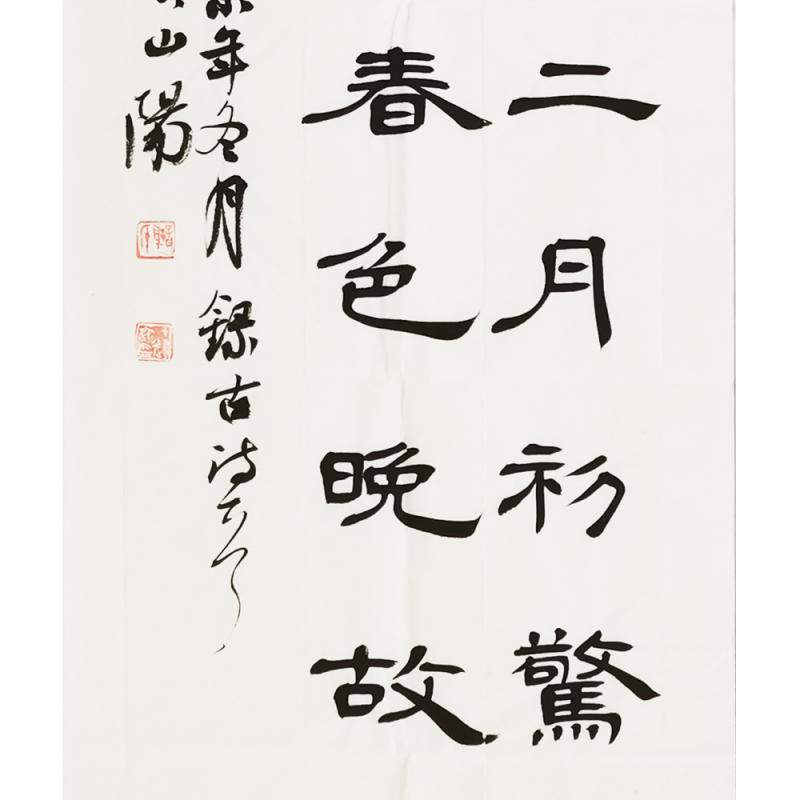 二月初驚
春色晚故
年冬月錄古詩
山陽